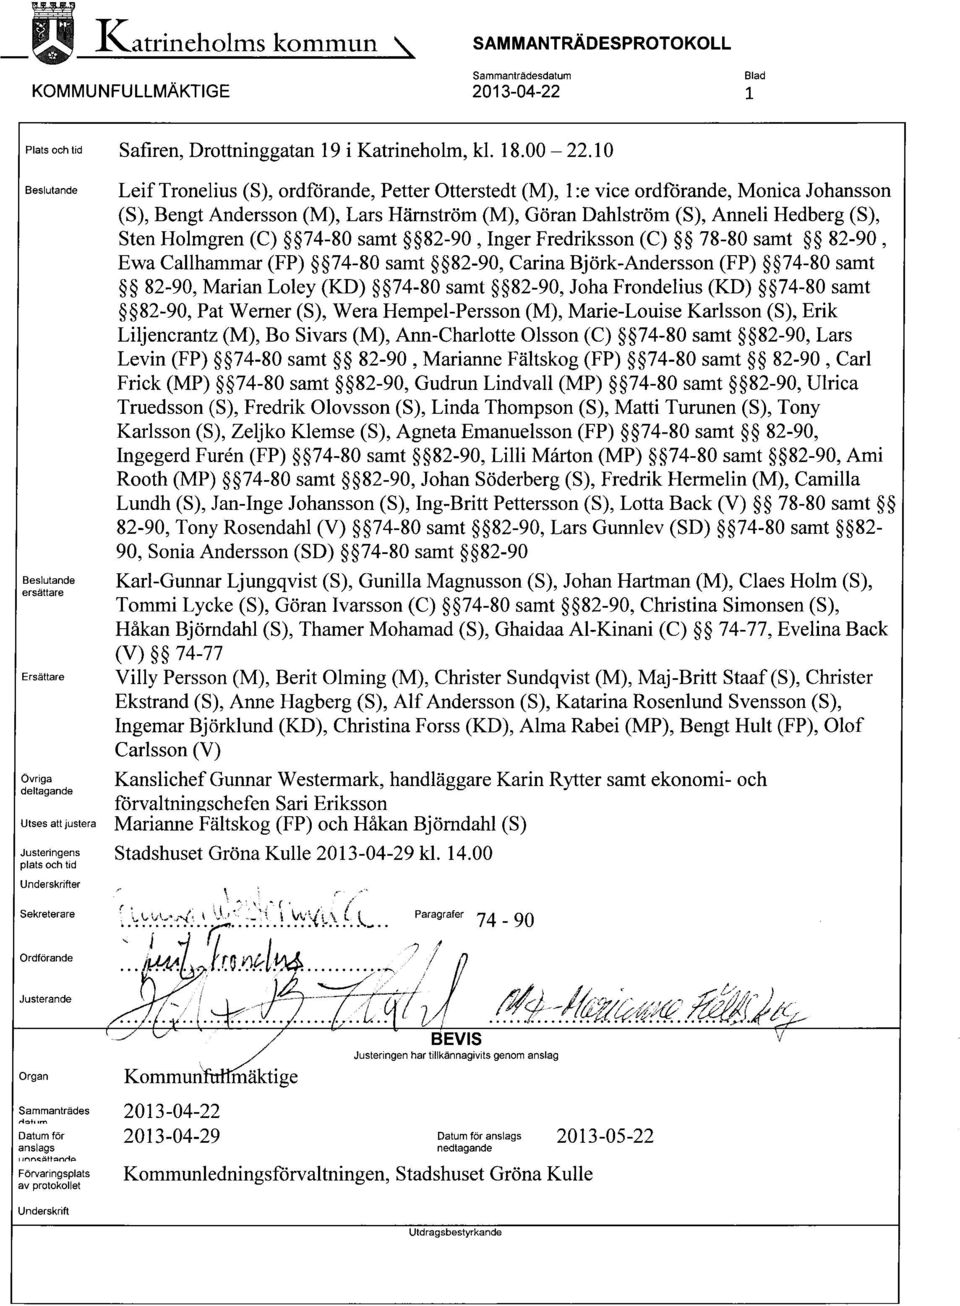 Katrineholms kommun
SAMMANTRÄDESPROTOKOLL
Sammanträdesdatum Blad
KOMMUNFULLMÄKTIGE 2013-04-22 1
Plats och tid Safiren, Drottninggatan 19 i Katrineholm, kl. 18.00 – 22.10
Beslutande Leif Tronelius (S), ordförande, Petter Otterstedt (M), 1:e vice ordförande, Monica Johansson
(S), Bengt Andersson (M), Lars Härnström (M), Göran Dahlström (S), Anneli Hedberg (S),
Sten Holmgren (C) §§74-80 samt §§82-90 , Inger Fredriksson (C) §§ 78-80 samt §§ 82-90 ,
Ewa Callhammar (FP) §§74-80 samt §§82-90, Carina Björk-Andersson (FP) §§74-80 samt
§§ 82-90, Marian Loley (KD) §§74-80 samt §§82-90, Joha Frondelius (KD) §§74-80 samt
§§82-90, Pat Werner (S), Wera Hempel-Persson (M), Marie-Louise Karlsson (S), Erik
Liljencrantz (M), Bo Sivars (M), Ann-Charlotte Olsson (C) §§74-80 samt §§82-90, Lars
Levin (FP) §§74-80 samt §§ 82-90 , Marianne Fältskog (FP) §§74-80 samt §§ 82-90 , Carl
Frick (MP) §§74-80 samt §§82-90, Gudrun Lindvall (MP) §§74-80 samt §§82-90, Ulrica
Truedsson (S), Fredrik Olovsson (S), Linda Thompson (S), Matti Turunen (S), Tony
Karlsson (S), Zeljko Klemse (S), Agneta Emanuelsson (FP) §§74-80 samt §§ 82-90,
Ingegerd Furén (FP) §§74-80 samt §§82-90, Lilli Márton (MP) §§74-80 samt §§82-90, Ami
Rooth (MP) §§74-80 samt §§82-90, Johan Söderberg (S), Fredrik Hermelin (M), Camilla
Lundh (S), Jan-Inge Johansson (S), Ing-Britt Pettersson (S), Lotta Back (V) §§ 78-80 samt §§
82-90, Tony Rosendahl (V) §§74-80 samt §§82-90, Lars Gunnlev (SD) §§74-80 samt §§82-
90, Sonia Andersson (SD) §§74-80 samt §§82-90
Beslutande ersättare Karl-Gunnar Ljungqvist (S), Gunilla Magnusson (S), Johan Hartman (M), Claes Holm (S),
Tommi Lycke (S), Göran Ivarsson (C) §§74-80 samt §§82-90, Christina Simonsen (S),
Håkan Björndahl (S), Thamer Mohamad (S), Ghaidaa Al-Kinani (C) §§ 74-77, Evelina Back
(V) §§ 74-77
Ersättare Villy Persson (M), Berit Olming (M), Christer Sundqvist (M), Maj-Britt Staaf (S), Christer
Ekstrand (S), Anne Hagberg (S), Alf Andersson (S), Katarina Rosenlund Svensson (S),
Ingemar Björklund (KD), Christina Forss (KD), Alma Rabei (MP), Bengt Hult (FP), Olof
Carlsson (V)
Övriga deltagande Kanslichef Gunnar Westermark, handläggare Karin Rytter samt ekonomi- och
förvaltningschefen Sari Eriksson
Utses att justera Marianne Fältskog (FP) och Håkan Björndahl (S)
Justeringens plats och tid Stadshuset Gröna Kulle 2013-04-29 kl. 14.00
Underskrifter
Sekreterare Paragrafer 74 - 90
Ordförande Leif Tronelius
Justerande Marianne Fältskog
BEVIS
Justeringen har tillkännagivits genom anslag
Organ Kommunfullmäktige
Sammanträdes datum 2013-04-22
Datum för anslags uppsättande 2013-04-29 Datum för anslags nedtagande 2013-05-22
Förvaringsplats av protokollet Kommunledningsförvaltningen, Stadshuset Gröna Kulle
Underskrift
Utdragsbestyrkande